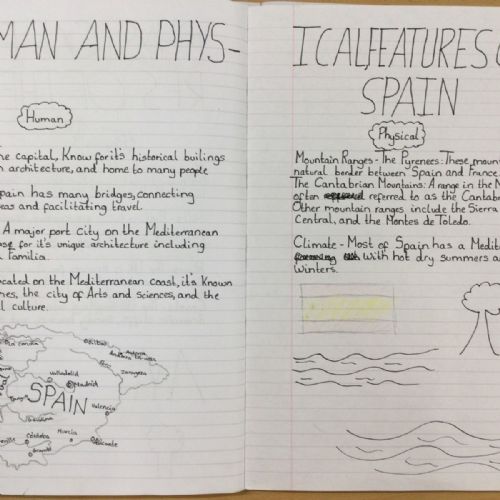 MAN AND PHYS-
ICAL FEATURES
SPAIN
Human
he capital, Know for it's historical builings
architecture, and home to many people
pain has many bridges, connecting
eas and facilitating travel.
A major port city on the Mediterranean
for it's unique architecture including
Familia.
cated on the Mediterranean coast, it's Known
nes, the city of Arts and sciences, and the
l culture.
Valladolid
Bilbao
Zaragoza
SPAIN
Madrid
Valencia
Córdoba
Murcia
Alicante
Physical
Mountain Ranges - The Pyrenees: These moun
natural border between Spain and France.
The Cantabrian Mountains: A range in the N
often referred to as the Cantab
Other mountain ranges include the Sierra
Central, and the Montes de Toledo.
Climate - Most of Spain has a Medit
with hot dry summers a
winters.